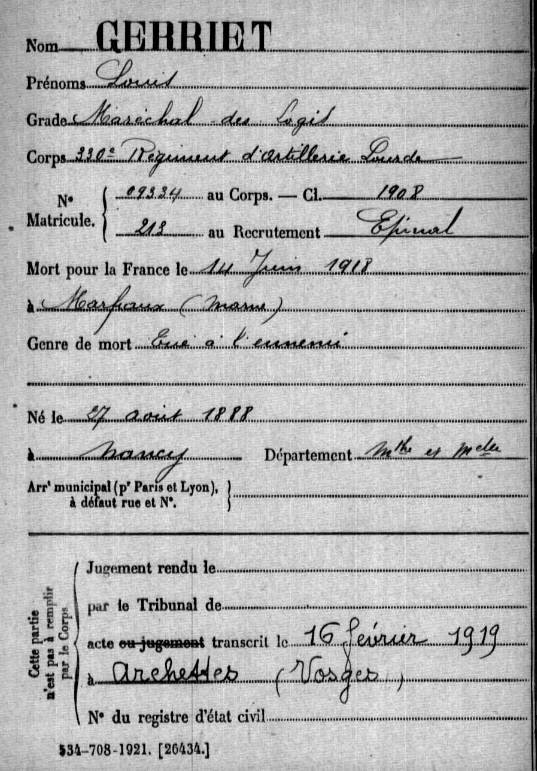 Nom GERRIET
Prénoms Louis
Grade Maréchal des Logis
Corps 330e Régiment d'Artillerie Lourde
Nº Matricule. 09334 au Corps. — Cl. 1908
213 au Recrutement Epinal
Mort pour la France le 14 Juin 1918
à Marfaux (Marne)
Genre de mort Tué à l'ennemi
Né le 27 août 1888
à Nancy Département Mthe et Melle
Arrt municipal (pr Paris et Lyon),
à défaut rue et Nº.
Cette partie
n'est pas à remplir
par le Corps
Jugement rendu le
par le Tribunal de
acte ou jugement transcrit le 16 février 1919
à Archettes (Vosges)
Nº du registre d'état civil
534-708-1921. [26434.]